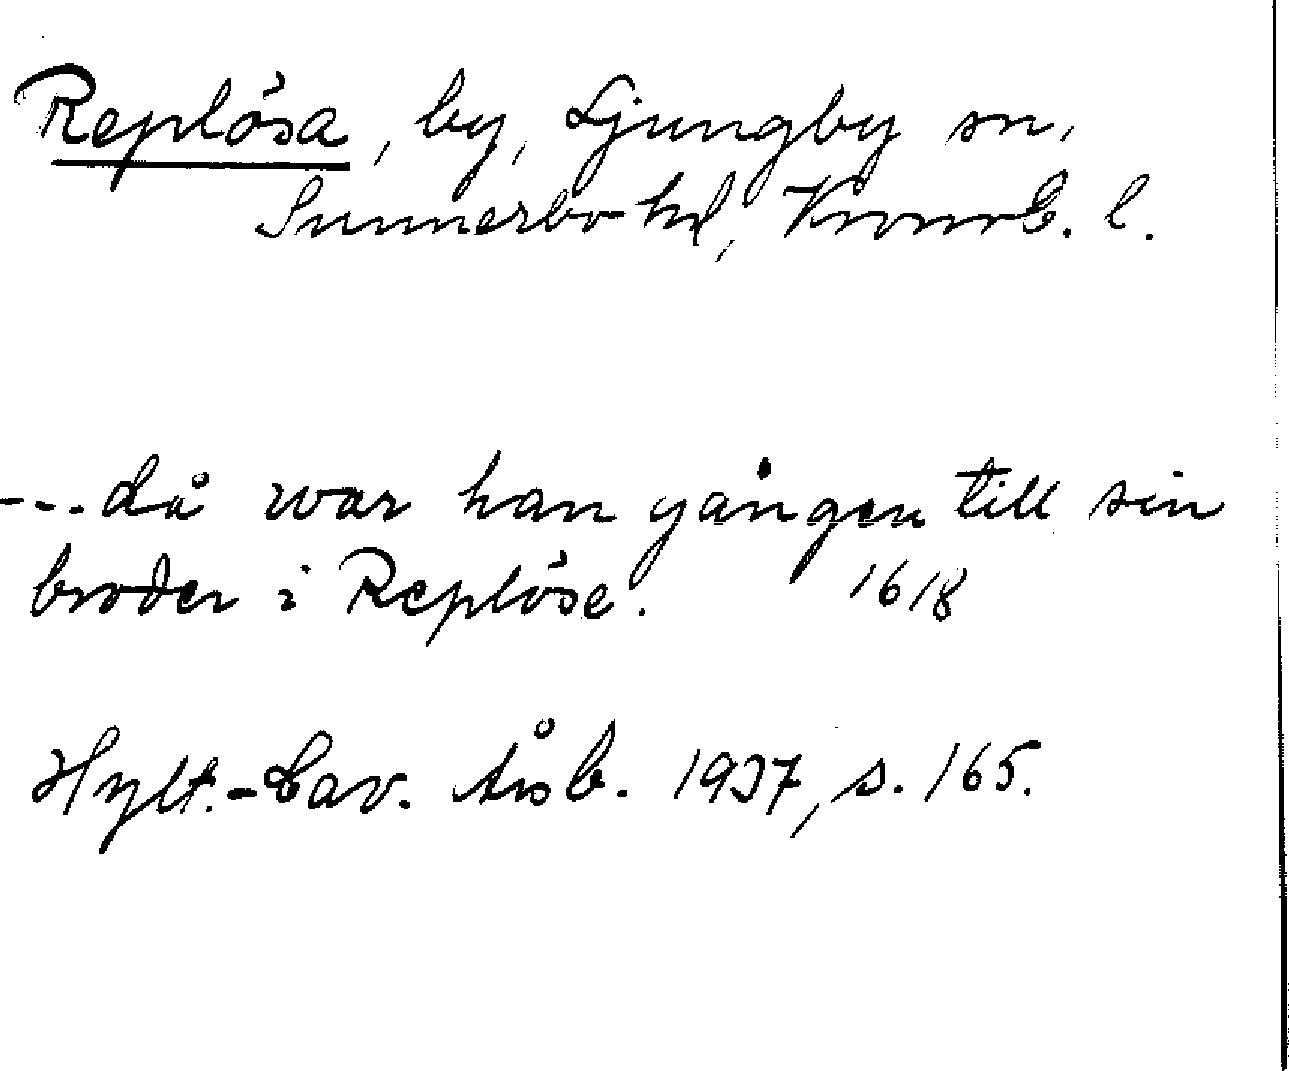 Replösa, by, Ljungby sn,
Sunnerbo hd, Kronob. l.
---då war han gången till sin
broder i Replöse. 1618
Hylt.-Cav. Årsb. 1937, s. 165.